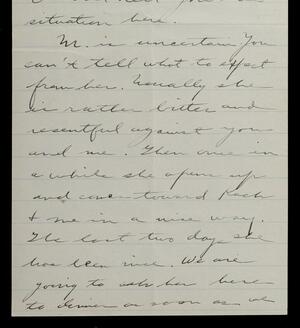 situation here.
M. is uncertain. You
can't tell what to expect
from her. Usually she
is rather bitter and
resentful against you
and me. Then once in
a while she opens up
and comes toward
& me in a nice way.
The last two days she
has been nice. We are
going to ask her here
to dinner as soon as we